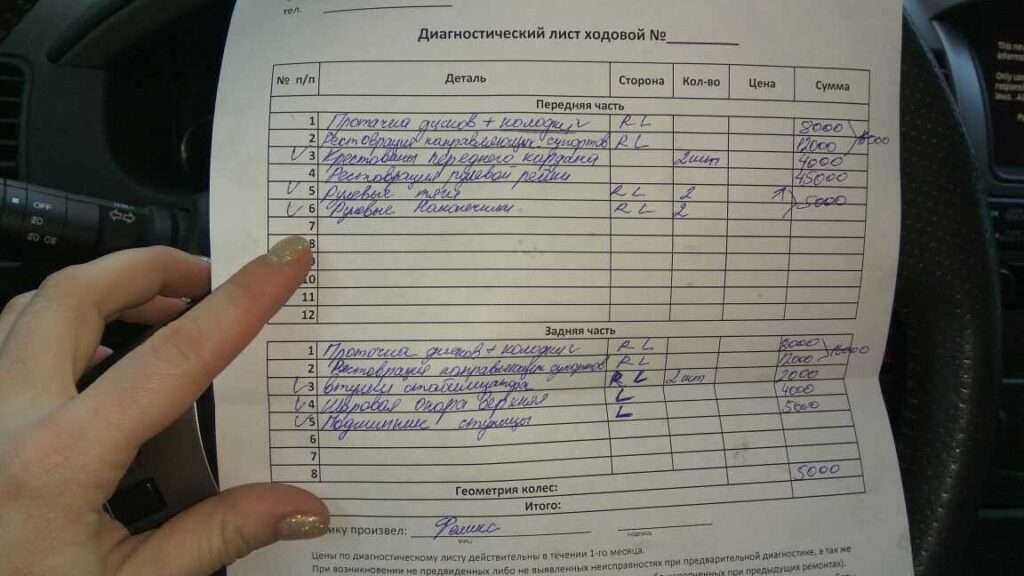 тел.
Диагностический лист ходовой №
№ п/п Деталь Сторона Кол-во Цена Сумма
Передняя часть
1 Проточка дисков + колодки R L 8000
2 Реставрация направляющих супортов R L 12000
3 Крестовины переднего кардана 2шт 4000
4 Реставрация рулевой рейки 45000
5 Рулевые тяги R L 2
6 Рулевые наконечники R L 2 5000
7
8
10
11
12
Задняя часть
1 Проточка дисков + колодки R L 8000
2 Реставрация направляющих супортов R L 12000
3 Втулки стабилизатора R L 2 шт 2000
4 Шаровая опора верхняя L 4000
5 Подшипник ступицы L 5000
6
7
8 5000
Геометрия колес:
Итого:
ику произвел:
подпись
Цены по диагностическому листу действительны в течении 1-го месяца.
При возникновении не предвиденных либо не выявленных неисправностях при предварительной диагностике, а так же
при предыдущих ремонтах).
OFF